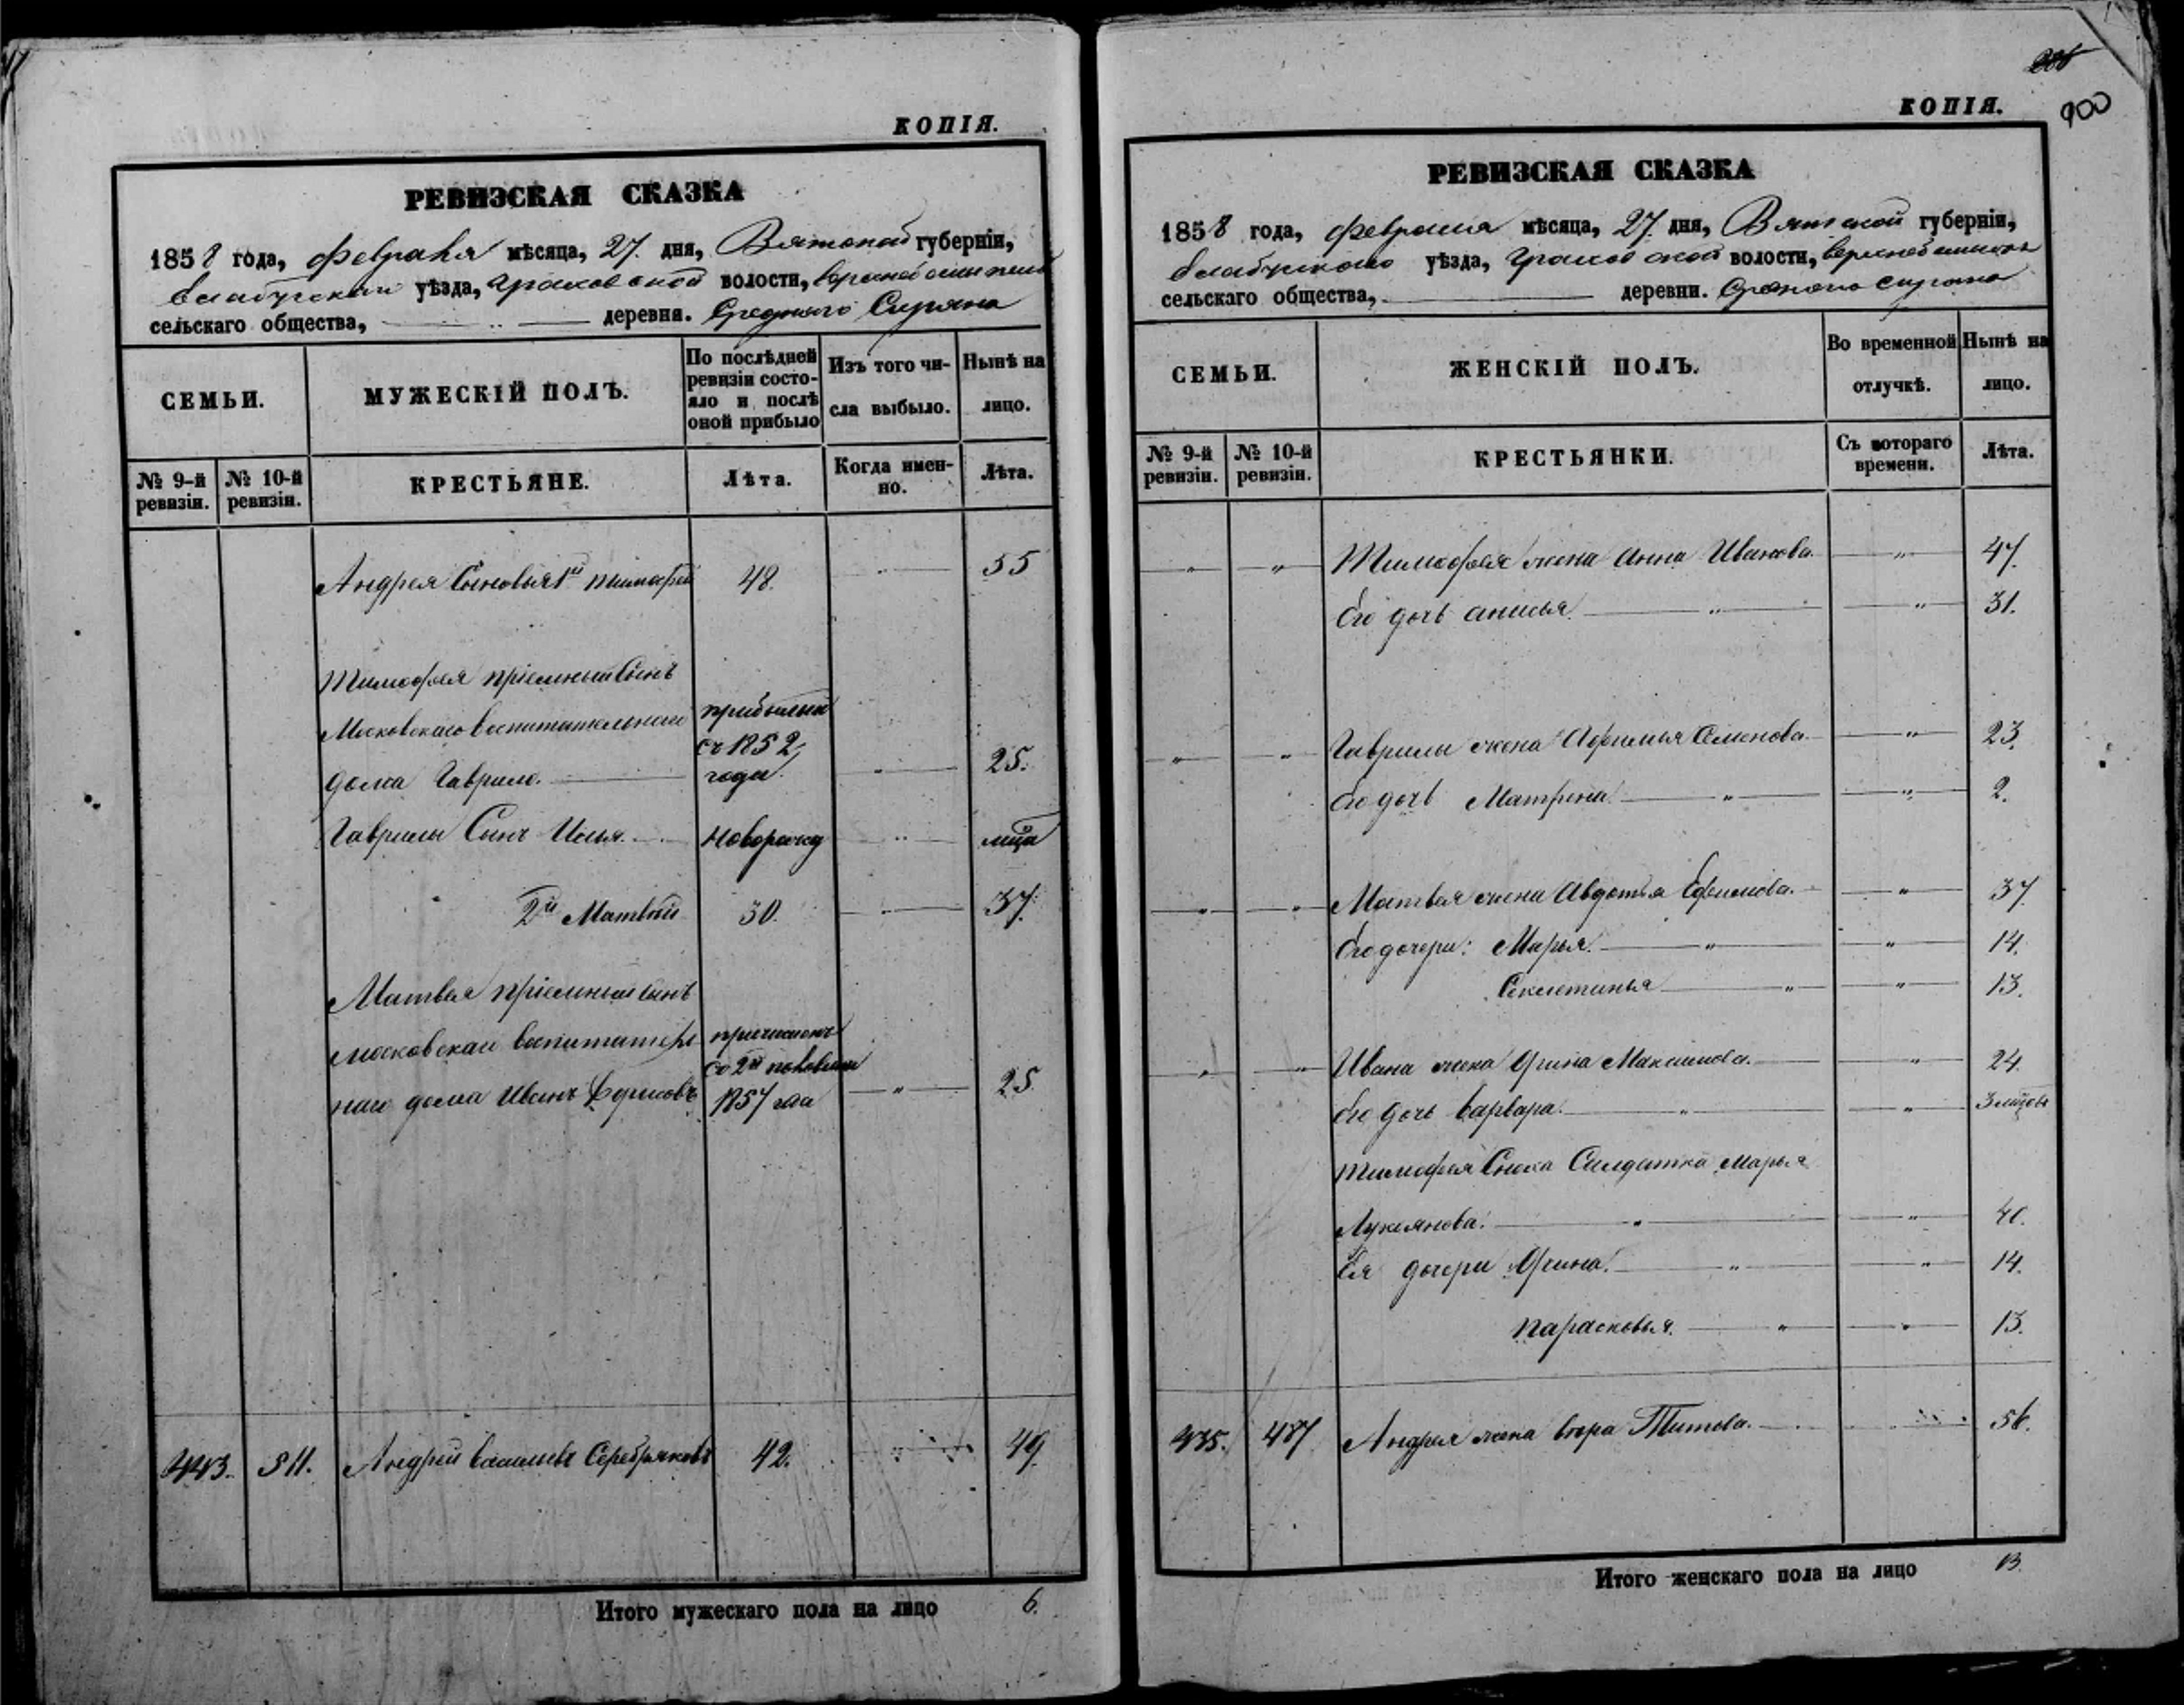 КОПІЯ.
РЕВИЗСКАЯ СКАЗКА
1858 года, февраля мѣсяца, 27. дня, Вятской губерніи,
Елабугскаго уѣзда, Граховской волости,
сельскаго общества, деревни. Средняго Сиряна
СЕМЬИ.
МУЖЕСКІЙ ПОЛЪ.
По послѣдней ревизіи состо-
яло и послѣ оной прибыло
Изъ того чи-
сла выбыло.
Нынѣ на
лицо.
№ 9-й ревизіи.
№ 10-й ревизіи.
КРЕСТЬЯНЕ.
Лѣта.
Когда имен-
но.
Лѣта.
Андрея Сыновья 1й Тимофей 48. " 55
Тимофея пріемный Сынъ
Московскаго воспитательнаго прибылый
дома Гаврило. съ 1852 года. " 25.
Гаврилы Сынъ Илья. Новорожд " мца
2й Матвѣй 30. " 37.
Матвея пріемный сынъ
Московскаго воспитатель причисленъ
наго дома Иванъ Борисовъ со 2й половины 1857 года " 25.
443. 511. Андрей Васильевъ Серебряковъ 42. " 49.
Итого мужескаго пола на лицо 6.
900
КОПІЯ.
РЕВИЗСКАЯ СКАЗКА
1858 года, февраля мѣсяца, 27. дня, Вятской губерніи,
Елабугскаго уѣзда, Граховской волости,
сельскаго общества, деревни. Средняго Сиряна
СЕМЬИ.
ЖЕНСКІЙ ПОЛЪ.
Во временной
отлучкѣ.
Нынѣ на
лицо.
№ 9-й ревизіи.
№ 10-й ревизіи.
КРЕСТЬЯНКИ.
Съ котораго
времени.
Лѣта.
" " Тимофея жена Анна Иванова. " 47.
Его дочь Анисья. " " 31.
" " Гаврилы жена Афимья Семенова. " 23.
Его дочь Матрена. " " 2.
" " Матвея жена Авдотья Ефимова. " 37
Его дочери: Марья. " " 14.
Секлетинья " " 13.
" " Ивана жена Орина Максимова. " 24.
Его дочь Варвара. " " 3 мцовъ
Тимофея Сноха Салдатка Марья
Лукоянова. " " 40.
Ея дочери Орина. " " 14.
Парасковья. " " 13.
435. 487. Андрея жена Вера Титова. " 56.
Итого женскаго пола на лицо 13.